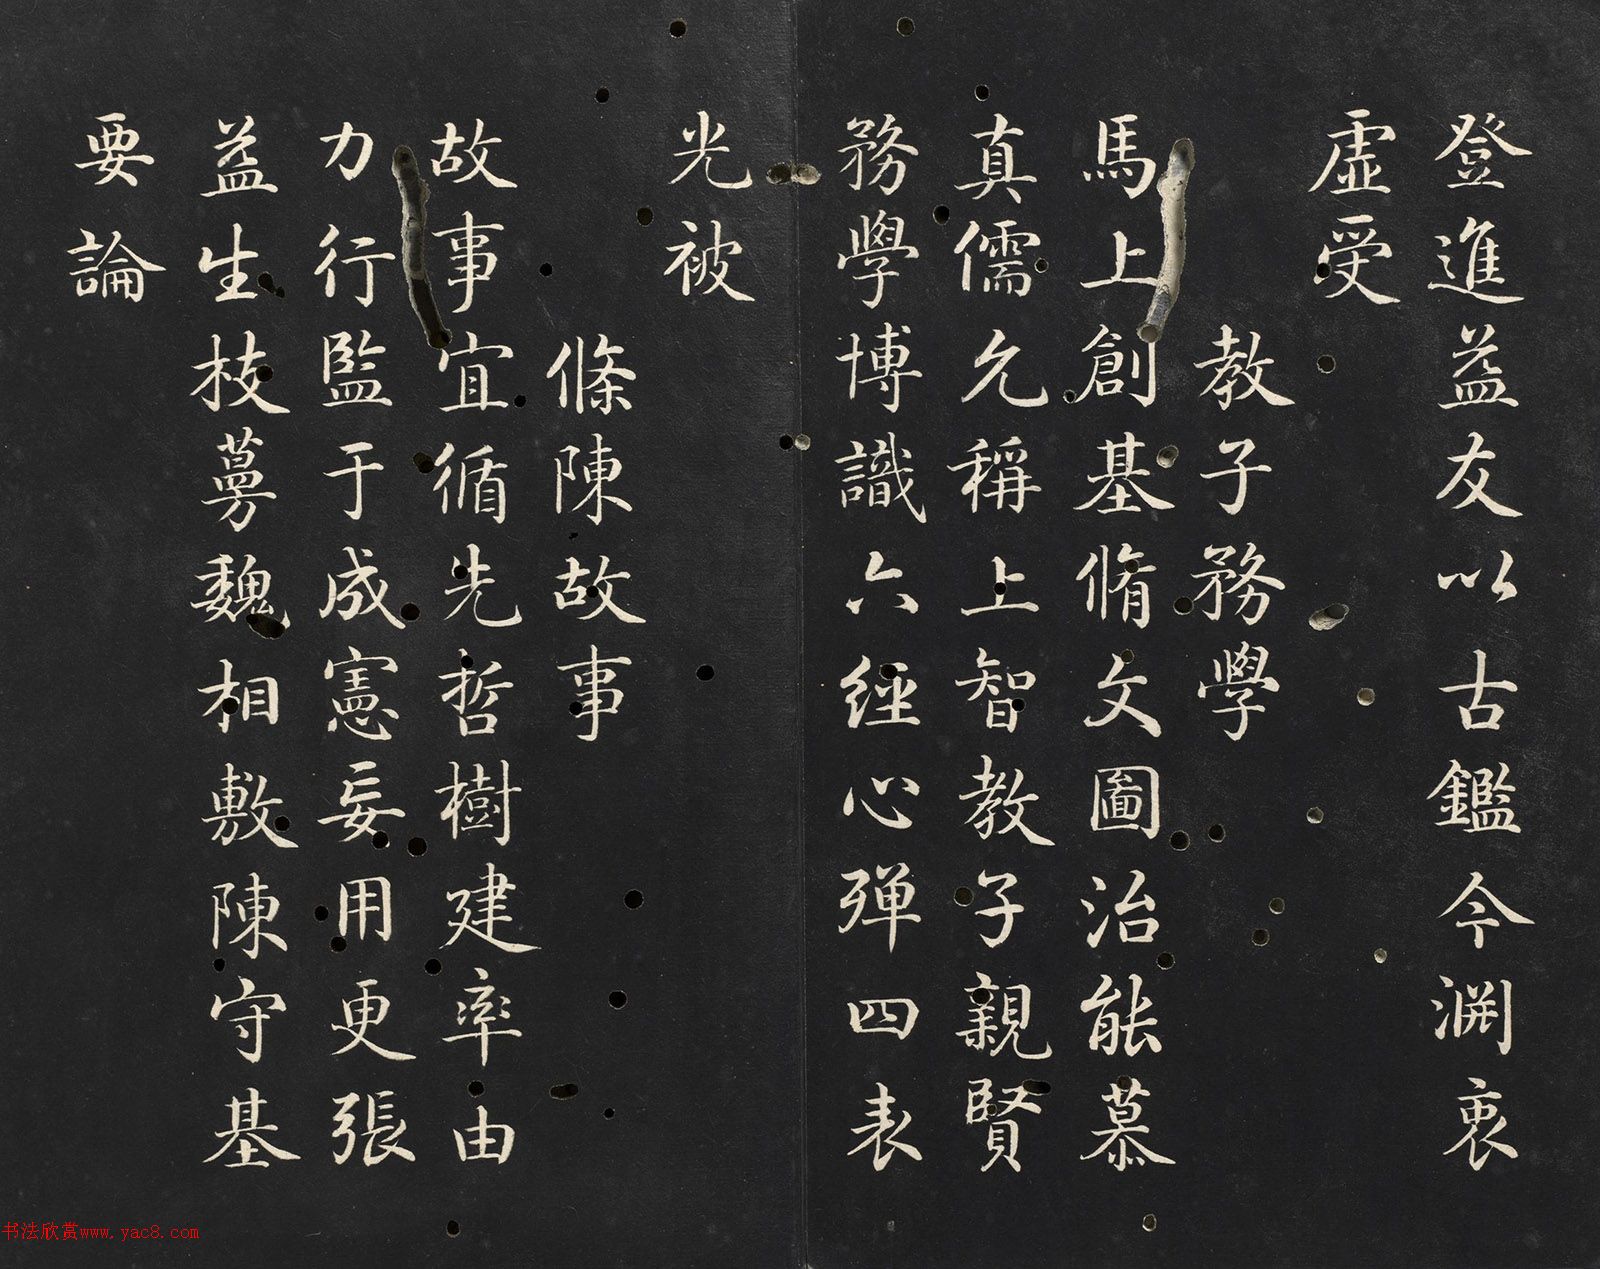 登進益友以古鑑今淵衷
虛受
教子務學
馬上創基脩文圖治能慕
真儒允稱上智教子親賢
務學博識六經心殫四表
光被
條陳故事
故事宜循先哲樹建率由
力行監于成憲妄用更張
益生枝蔓魏相敷陳守基
要論
书法欣赏www.yac8.com